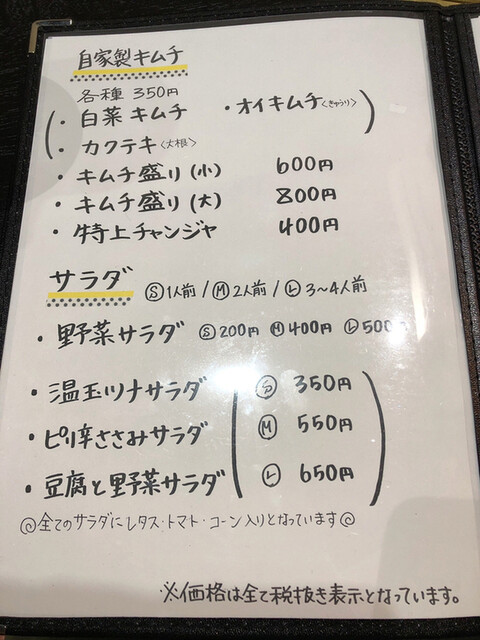 自家製キムチ
各種 350円
(・白菜キムチ ・オイキムチ〈きゅうり〉)
・カクテキ〈大根〉
・キムチ盛り(小) 600円
・キムチ盛り(大) 800円
・特上チャンジャ 400円
サラダ Ⓢ1人前/Ⓜ2人前/Ⓛ3〜4人前
・野菜サラダ Ⓢ200円 Ⓜ400円 Ⓛ500円
・温玉ツナサラダ Ⓢ 350円
・ピリ辛ささみサラダ Ⓜ 550円
・豆腐と野菜サラダ Ⓛ 650円
◎全てのサラダにレタス・トマト・コーン入りとなっています◎
※価格は全て税抜き表示となっています。